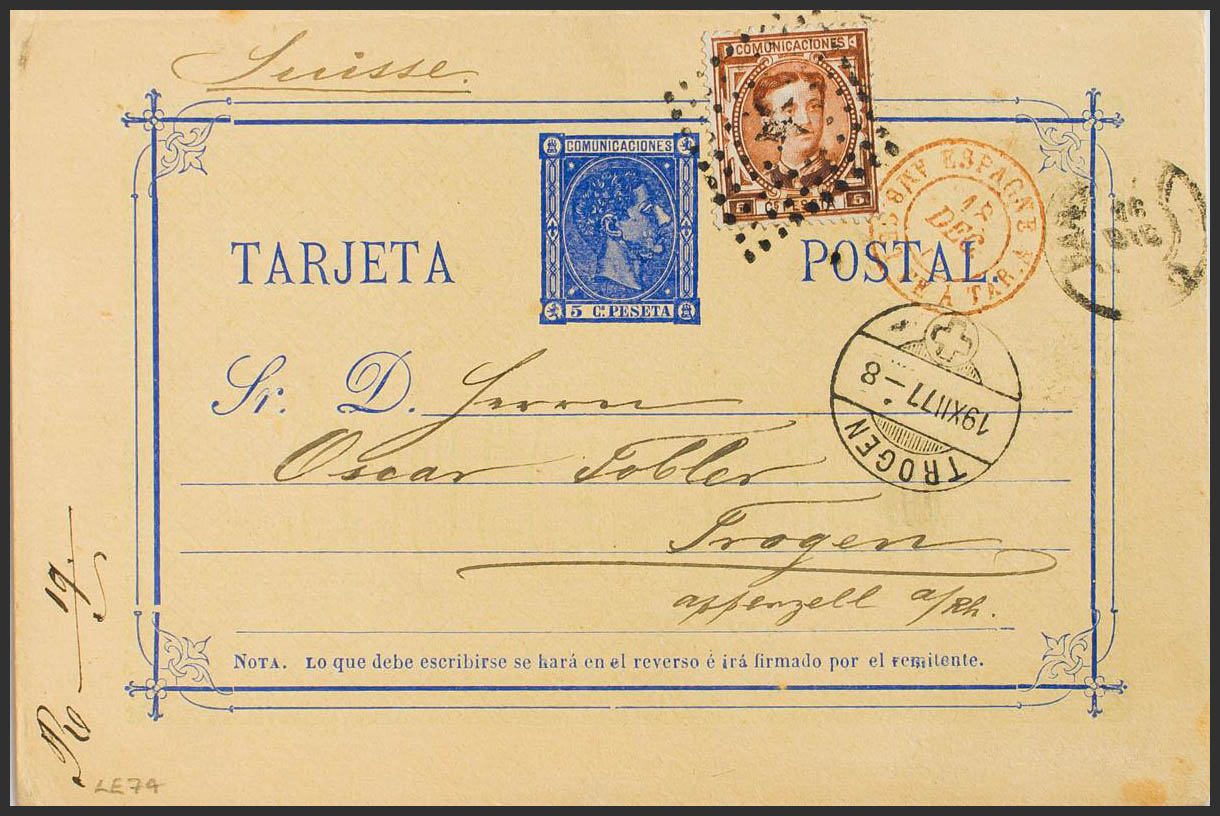 Suisse.
COMUNICACIONES
5 Cs PESETA 5
COMUNICACIONES
5 Cs PESETA
TARJETA POSTAL.
ESPAGNE
18
DEC
16
DIC
TROGEN
19XII77–8
Sr. D. Herrn
Oscar Tobler
Trogen
Appenzell a/Rh.
NOTA. Lo que debe escribirse se hará en el reverso é irá firmado por el remitente.
19.
LE74